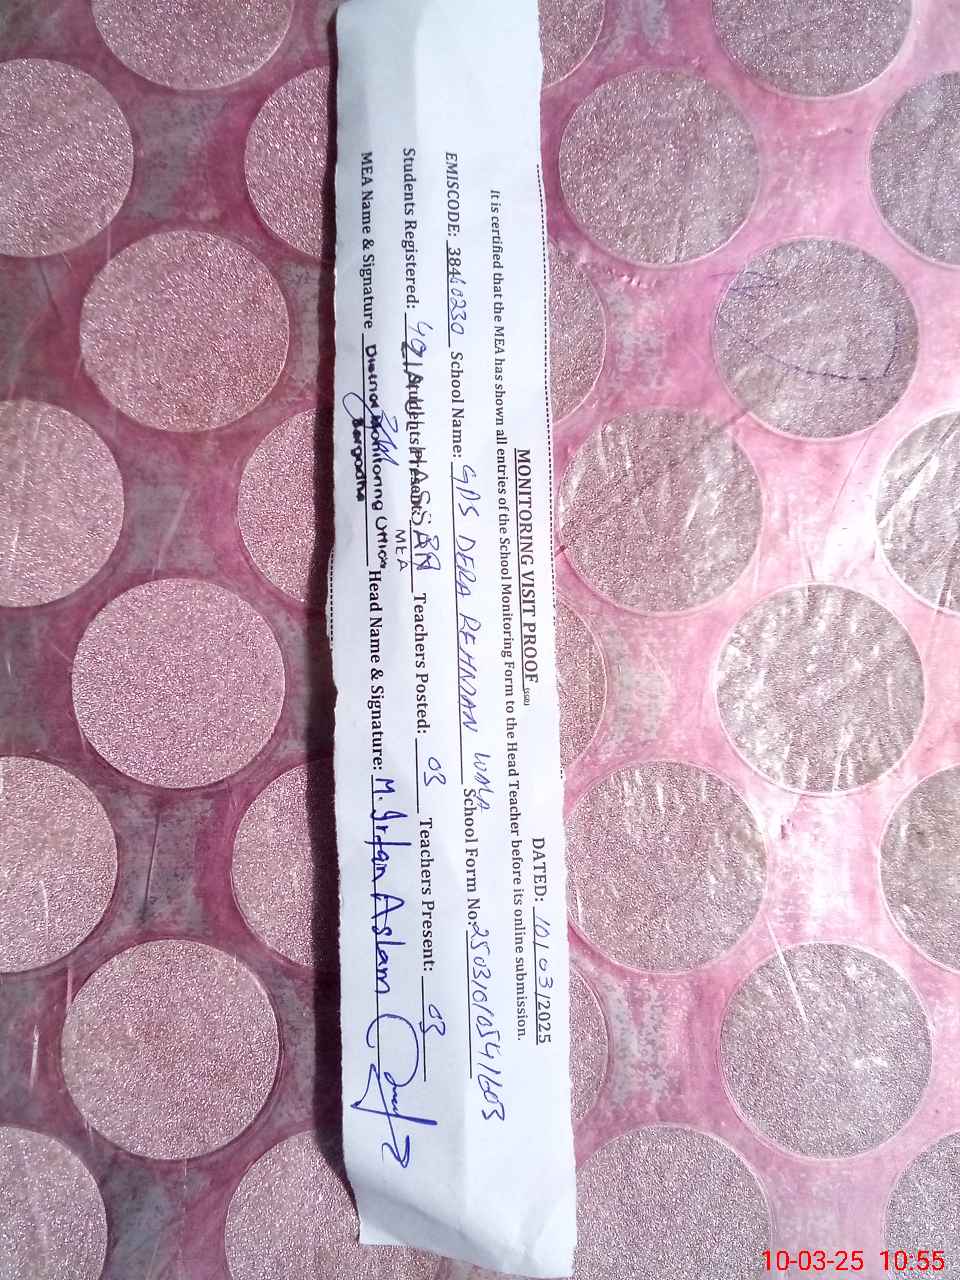 MONITORING VISIT PROOF
DATED: 10/03/2025
It is certified that the MEA has shown all entries of the School Monitoring Form to the Head Teacher before its online submission.
EMISCODE: 38460230 School Name: GPS DERA REHMAN WALA School Form No: 25031010541603
Students Registered: Students Teachers Posted: 03 Teachers Present: 03
HASSAN
MEA
MEA Name & Signature Head Name & Signature: M. Irfan Aslam
District Monitoring Officer
Sargodha
10-03-25 10:55